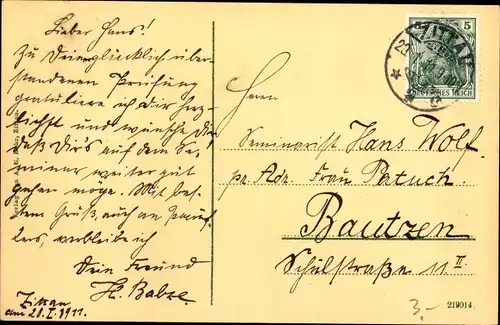 Lieber Hans!
Zu Deiner glücklich über-
standenen Prüfung
gratuliere ich dir herz-
lichst und wünsche Dir
daß Dirs auf dem Se-
minar weiter gut
gehen möge. Mit bes-
tem Gruß, auch an
verbleibe ich
Dein Freund
H. Babze
Zittau
am 21.I.1911.
ZITTAU
5
DEUTSCHES REICH
Herrn
Seminarist Hans Wolf.
pr. Adr. Frau Patuch.
Bautzen
Schulstraße 11 II
3.-
219014.